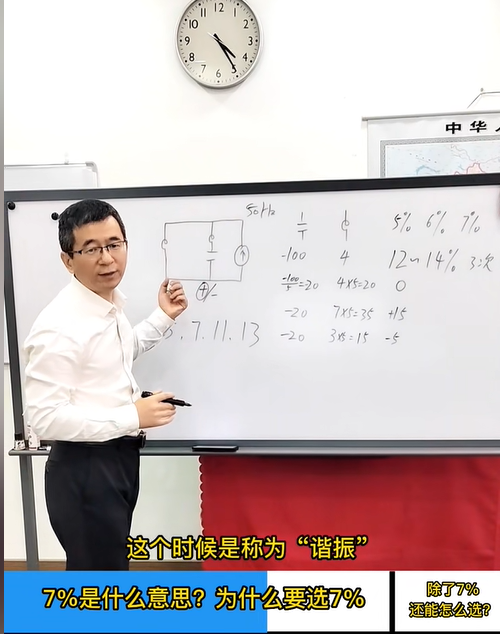 12
1
2
3
4
5
6
7
8
9
10
11
中华
50Hz
5% 6% 7%
-100 4 12~14% 3次
-100/5=20 4x5=20 0
-20 7x5=35 +15
-20 3x5=15 -5
.7.11.13
+/-
这个时候是称为“谐振”
7%是什么意思?为什么要选7%
除了7%
还能怎么选?